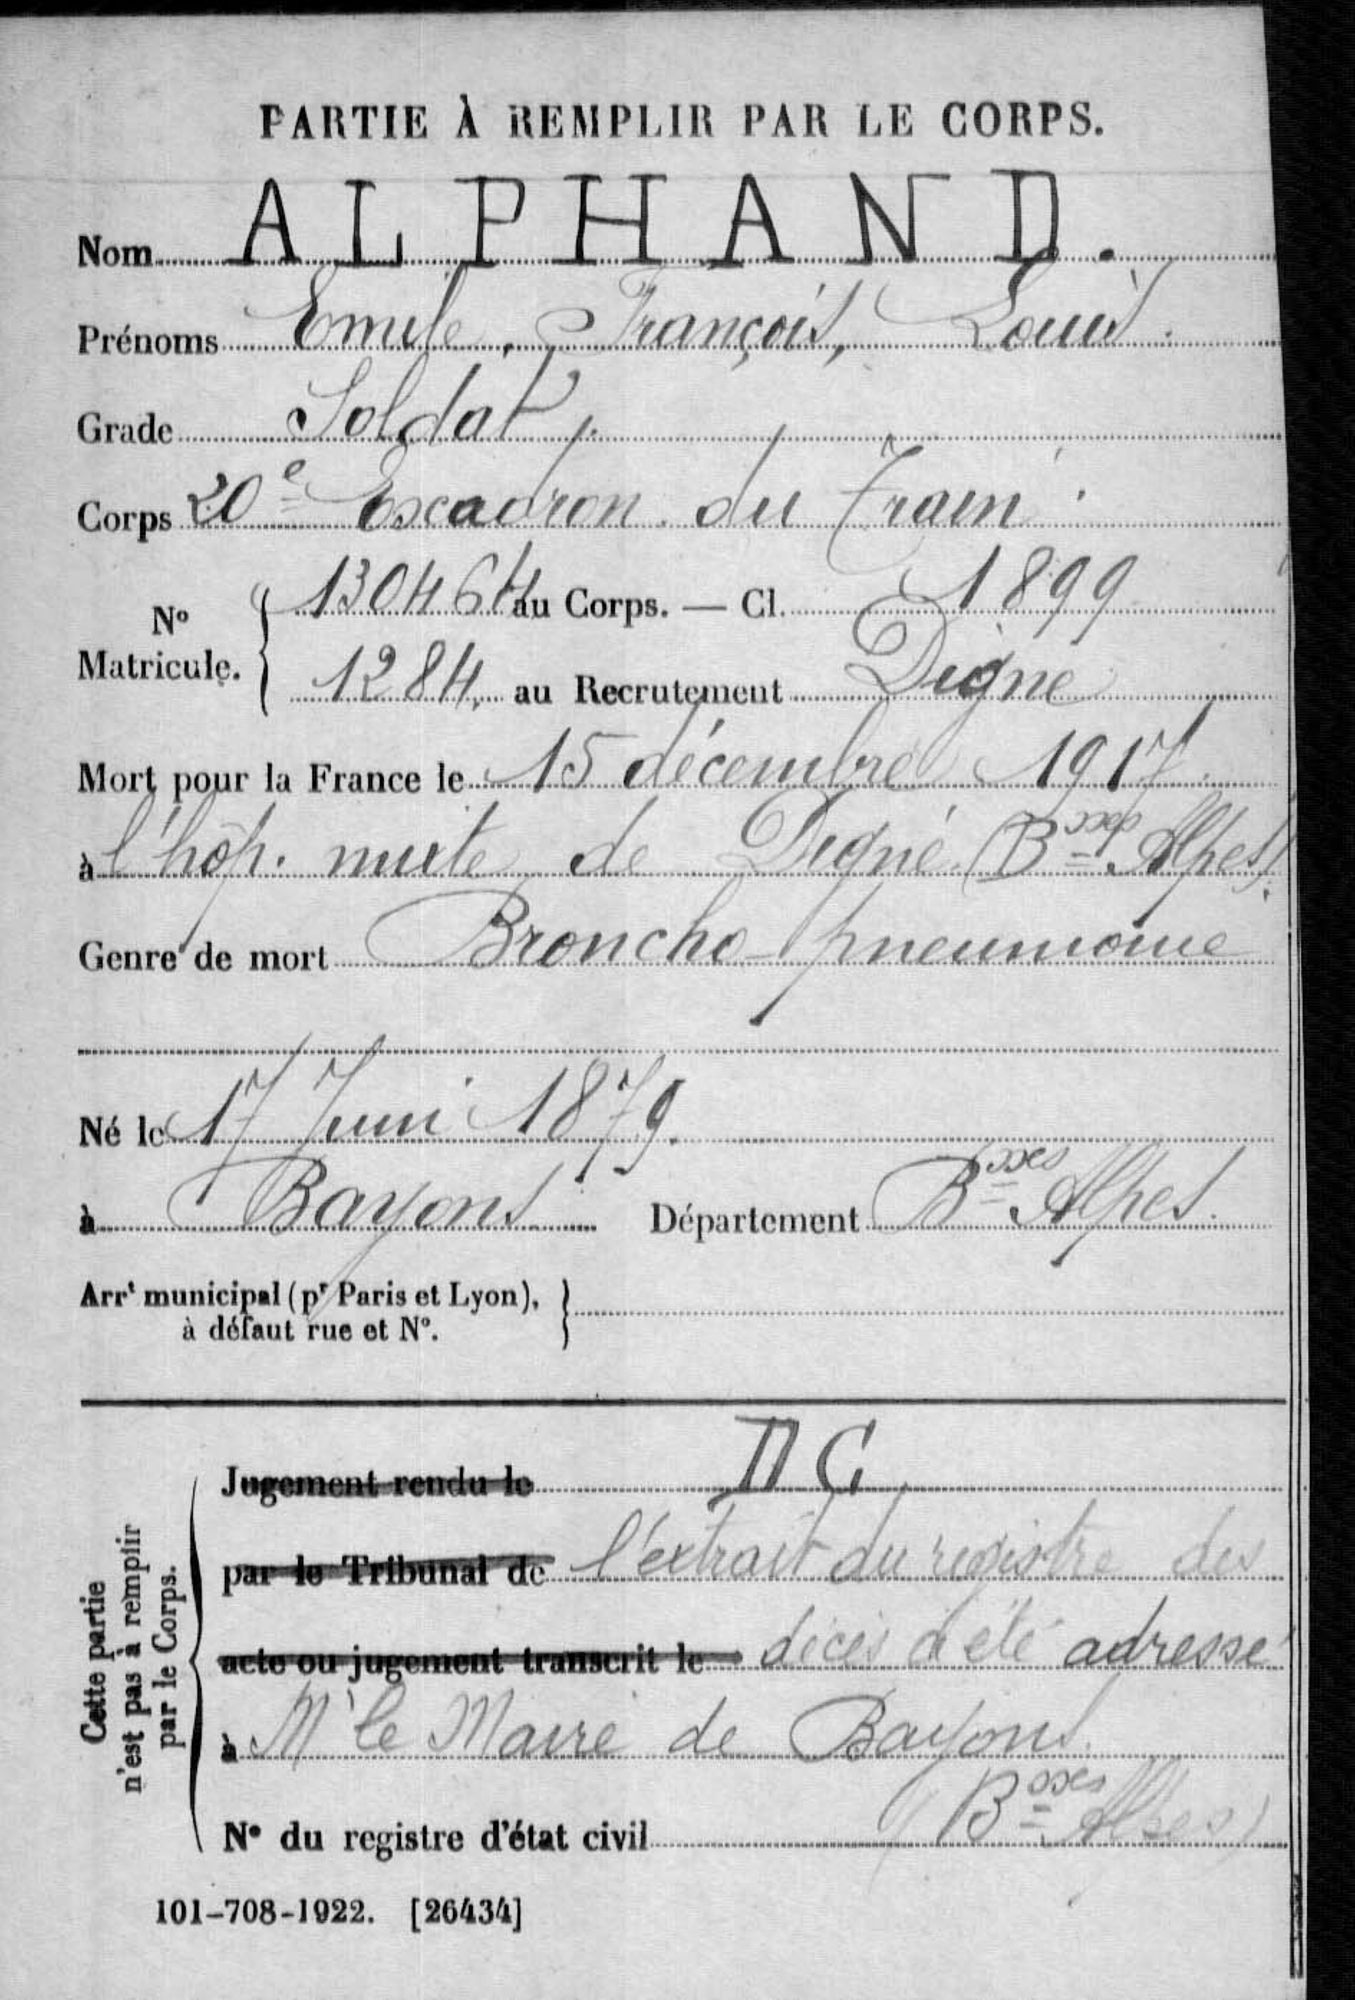 PARTIE À REMPLIR PAR LE CORPS.
Nom ALPHAND.
Prénoms Emile, François, Louis.
Grade Soldat.
Corps 20e Escadron du Train.
No Matricule. { 130464 au Corps. — Cl. 1899
1284 au Recrutement Digne
Mort pour la France le 15 décembre 1917.
à l'hôp. mixte de Digne (Bsses Alpes).
Genre de mort Broncho-pneumonie
Né le 17 Juin 1879.
à Bayons Département Bsses Alpes.
Arrt municipal (pr Paris et Lyon), }
à défaut rue et No.
Cette partie
n'est pas à remplir
par le Corps.
Jugement rendu le DC
par le Tribunal de l'extrait du registre des
acte ou jugement transcrit le décès a été adressé
à Mr le Maire de Bayons.
(Bsses Alpes)
No du registre d'état civil
101-708-1922. [26434]